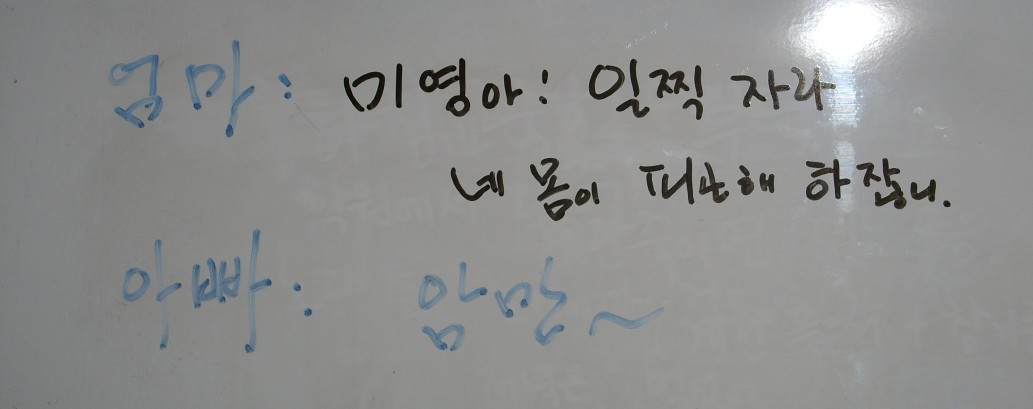 엄마: 미영아! 일찍 자라
네 몸이 피곤해 하잖니.
아빠: 암만~